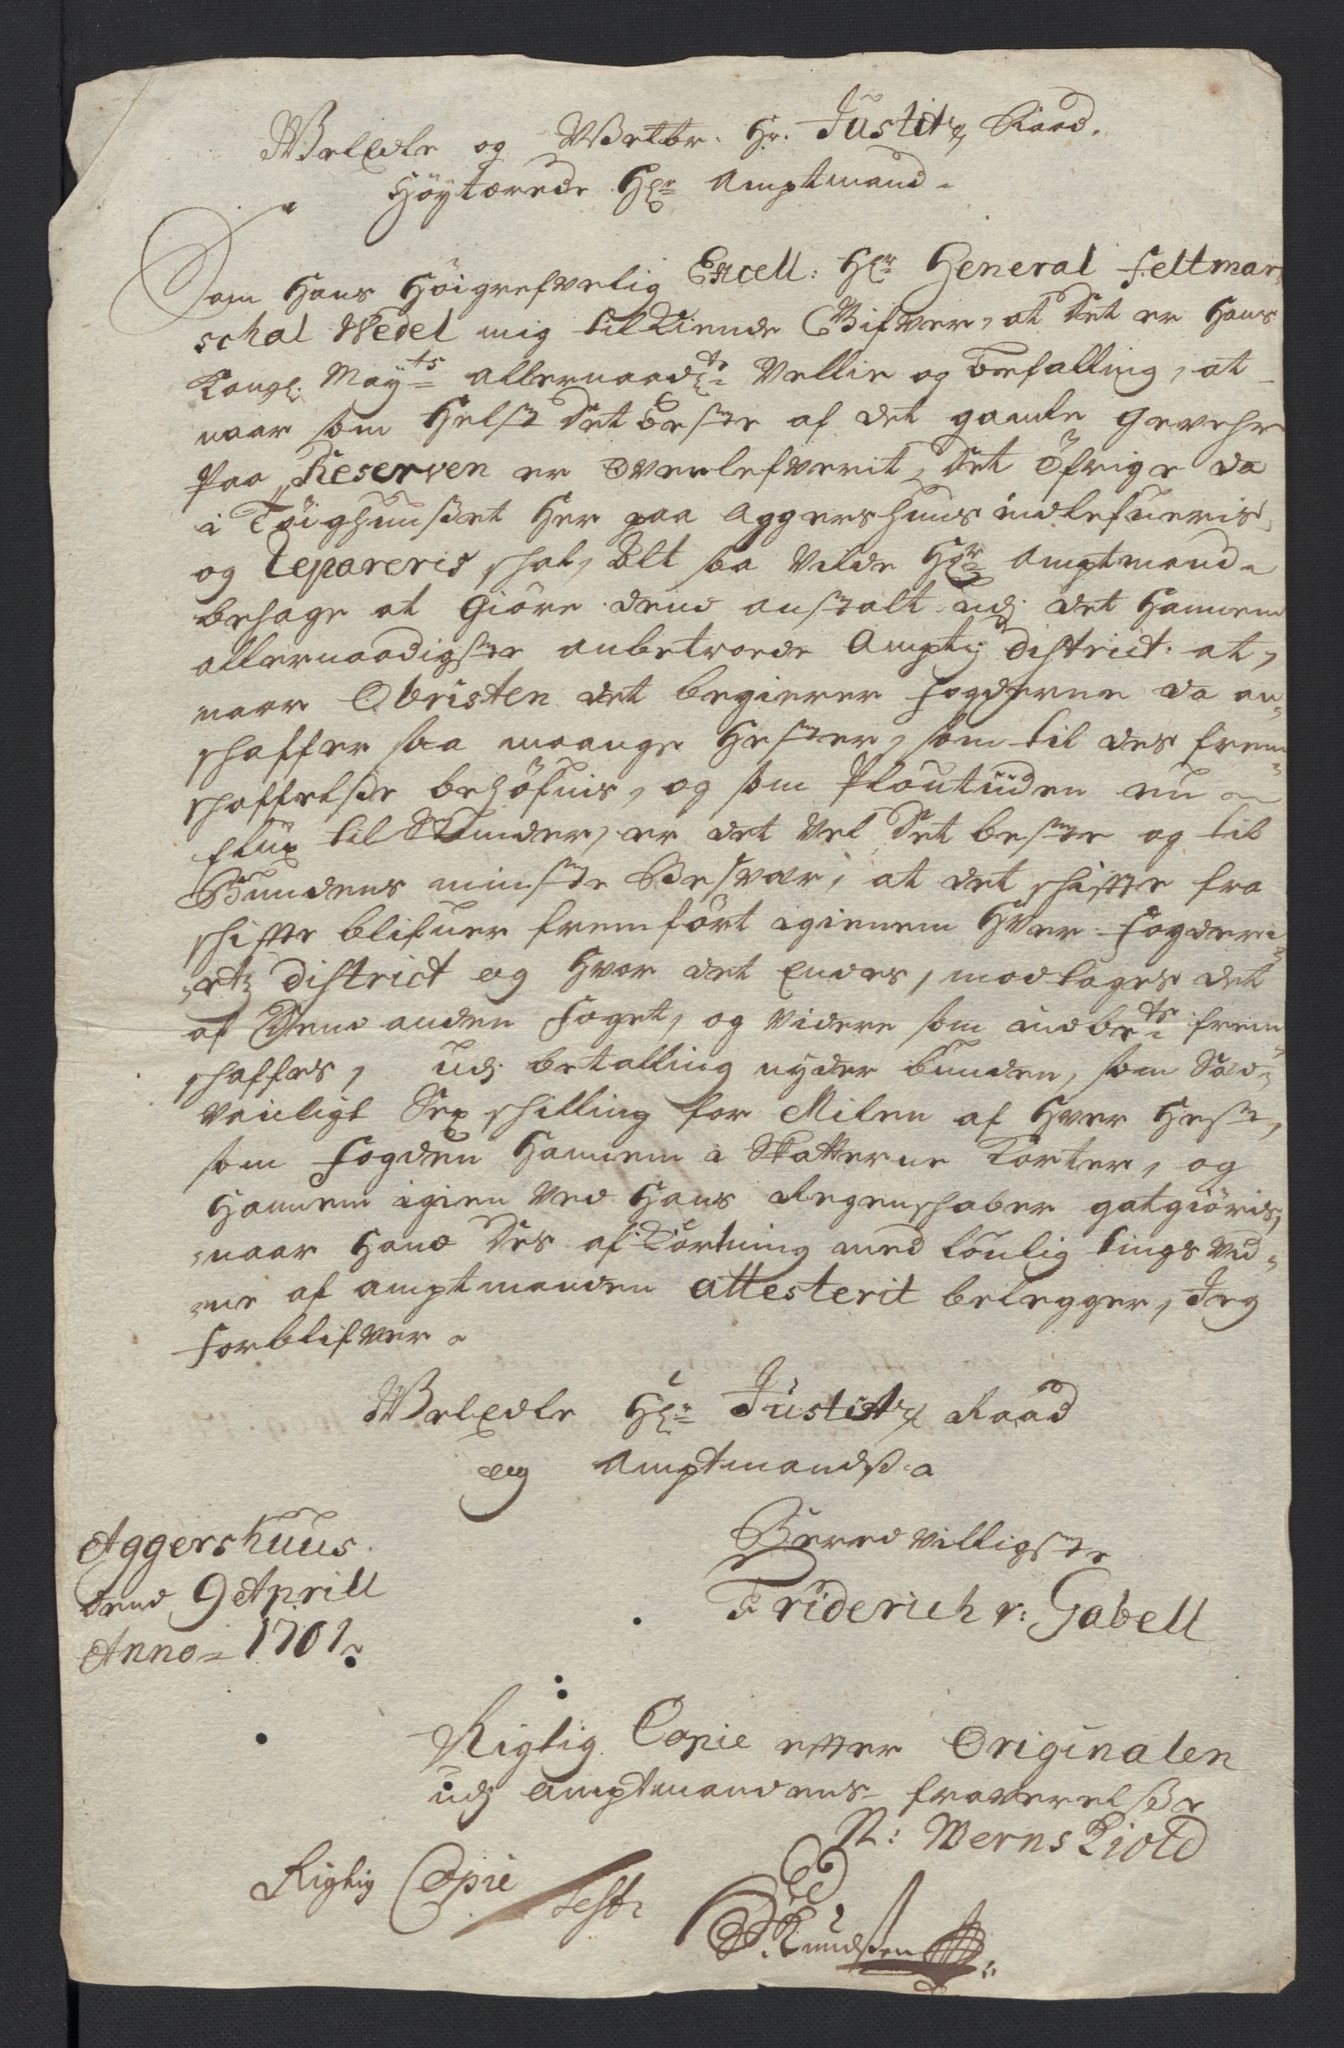 WelEdle og Welbr. Hr. Justitz Raad.
Höytærede Hr. Amptmand.
Som Hans Höigrefvelig Excell: Hr. General Feltmar-
schal Wedel mig tilkiende Gifver, at Det er Hans
Kongl. Mayts allernaadte Villie og Befalling, at
naar som Helst Det beste af det gamle Gevehr
Paa Reserven er Overlefverit, Det Öfrige da
i Töighuuset Her paa Aggershuus indlefueris
og Repareris schal, Alt saa Vilde Hr. Amptmand
behage at Giöre dend anstalt udj det Hannem
allernaadigste anbetroede Amptz District. at,
naar Obristen det begierer Fogderne da an-
schaffer saa mange Hester, som til des frem-
schaffelse behöfuis, og som Ploutiiden nu
flux til Stunder, er det Vel Det beste og til
Bundens minste Besvær, at det schiffte fra
schiffte blifuer fremfört igienem Hver Fogderi-
etz District og Hvor det Endes, modtages det
af Dend anden Foget, og Videre som indbete frem-
schaffes, udj betalling nyder bunden, som Sæd-
vanligt Sex schilling for Milen af Hver Hest,
som Fogden Hannem i Skatterne Korter, og
Hannem igien Ved Hans Regenschaber gotgiöris,
naar Hand Des afkortning med loulig tings Vid-
ne af Amptmanden Attesterit belegger, Jeg
Forblifver
WelEdle Hr. Justitz Raad
og Amptmands
Aggershuus. Beredvilligste
Dend 9 Aprill Friderich v: Gabell
Anno 1701
Rigtig Copie effter Originalen
udj Amptmandens fraverelse
N: Wernskiold
Rigtig Copie test:
Knudsen